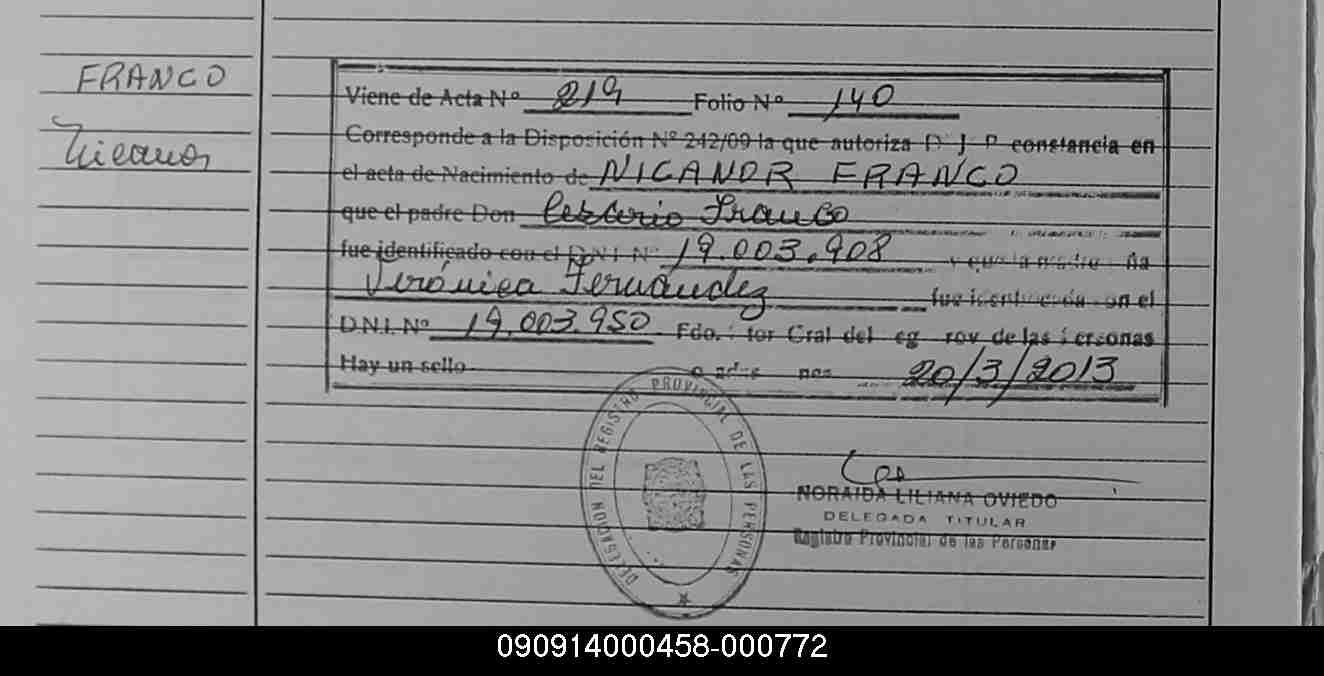 FRANCO
Nicanor
Viene de Acta Nº 219 Folio Nº 140
Corresponde a la Disposición Nº 242/09 la que autoriza D J P constancia en
el acta de Nacimiento de NICANOR FRANCO
que el padre Don Franco
fue identificado con el D.N.I. Nº 19.003.908 y que la madre ña
Verónica Fernández fue identificada on el
D.N.I. Nº 19.003.950 Fdo. tor Gral del eg rov de las Personas
Hay un sello 20/3/2013
DELEGACION DEL REGISTRO PROVINCIAL DE LAS PERSONAS
NORAIDA LILIANA OVIEDO
DELEGADA TITULAR
Registro Provincial de las Personas
090914000458-000772